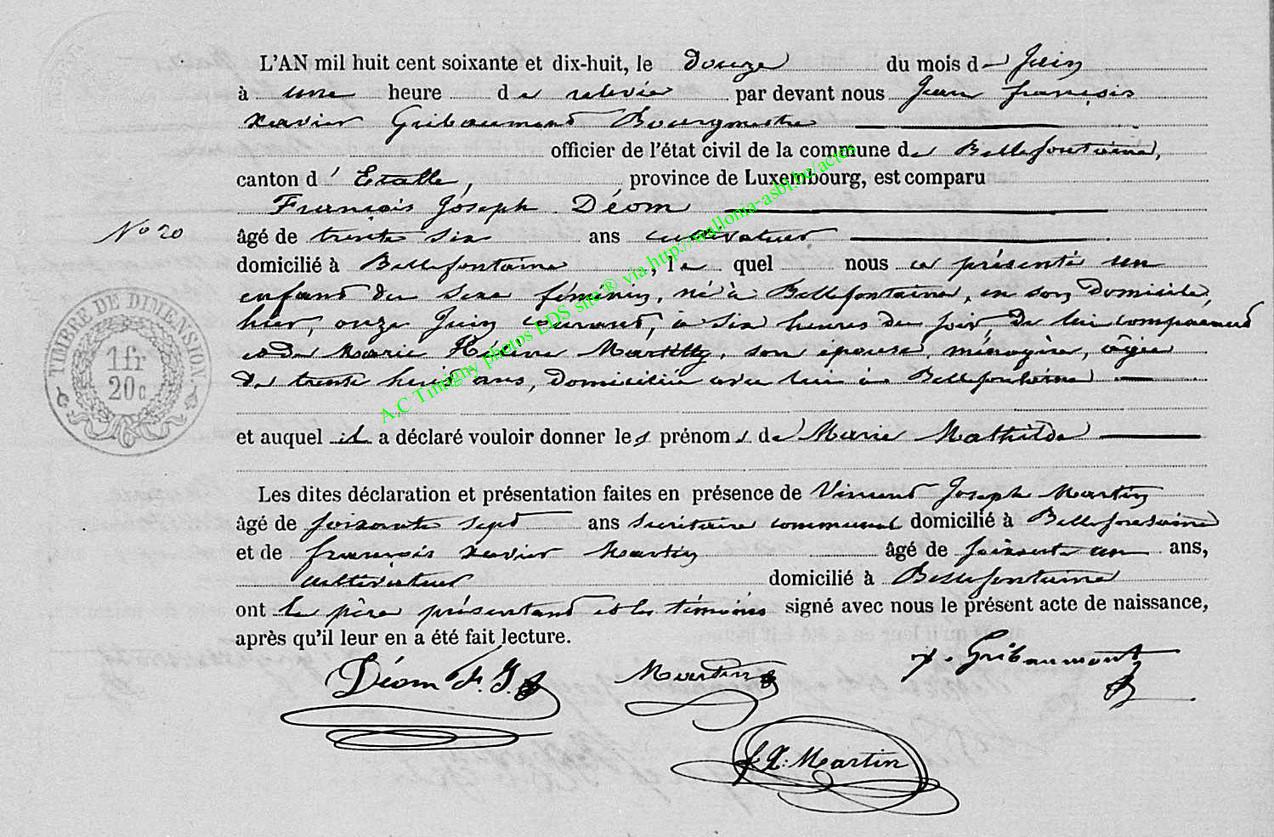 L'AN mil huit cent soixante et dix-huit, le Douze du mois de Juin
à une heure de relevée par devant nous Jean François
Xavier Gribaumont Bourgmestre
officier de l'état civil de la commune de Bellefontaine,
canton d'Etalle, province de Luxembourg, est comparu
François Joseph Déom
No 20 âgé de trente six ans cultivateur
domicilié à Bellefontaine, le quel nous a présenté un
enfant du sexe féminin, né à Bellefontaine, en son domicile,
hier, onze Juin courant, à six heures du soir, de lui comparant
et de Marie Hélène Martilly, son épouse, ménagère, âgée
de trente huit ans, domiciliée avec lui à Bellefontaine
et auquel il a déclaré vouloir donner les prénoms de Marie Mathilde
Les dites déclaration et présentation faites en présence de Vincent Joseph Martin
âgé de soixante sept ans secrétaire communal domicilié à Bellefontaine
et de françois Xavier Martin âgé de soixante un ans,
cultivateur domicilié à Bellefontaine
ont le père présentant et les témoins signé avec nous le présent acte de naissance,
après qu'il leur en a été fait lecture.
Déom f. J. Martin Gribaumont
f. X. Martin
TIMBRE DE DIMENSION
1fr
20c
A.C Tintigny photos LDS site ® via http://wallonia-asbl.be/actes